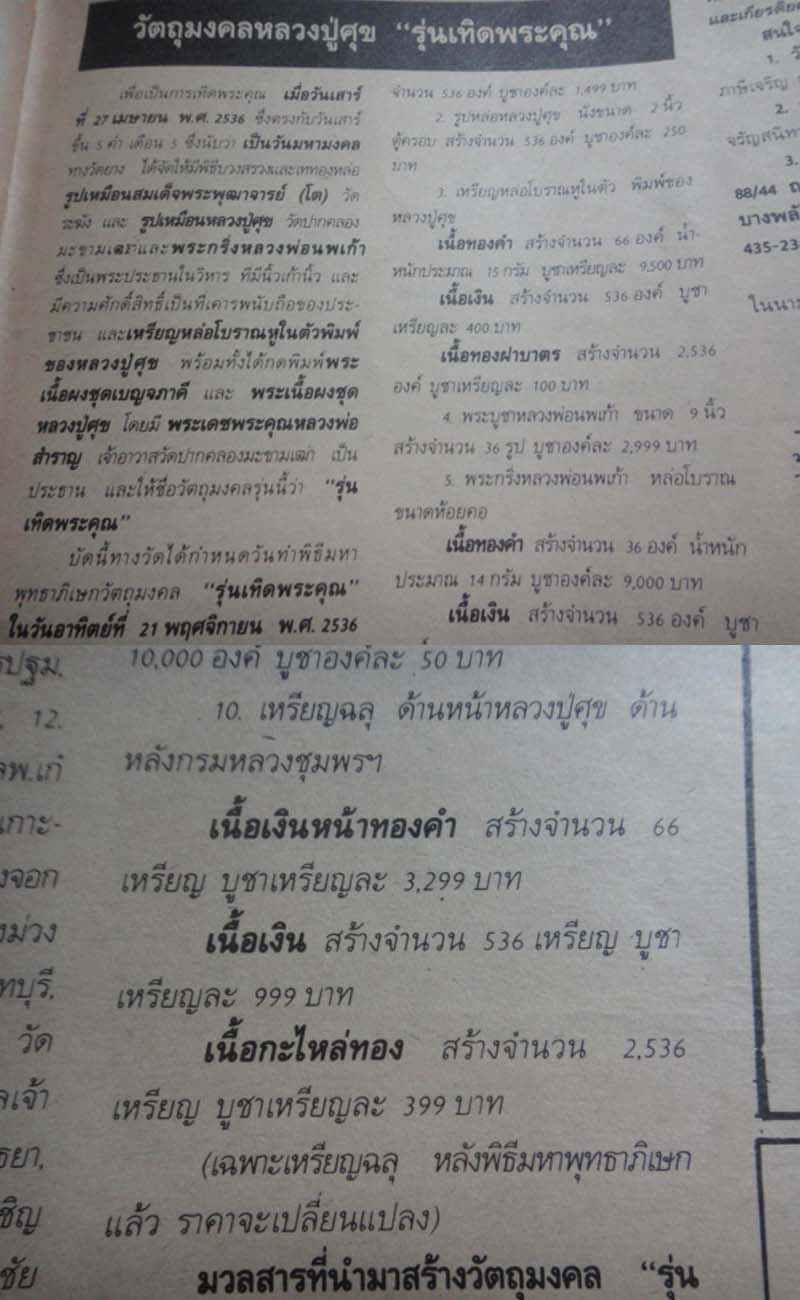 วัตถุมงคลหลวงปู่ศุข “รุ่นเทิดพระคุณ”
เพื่อเป็นการเทิดพระคุณ เมื่อวันเสาร์
ที่ 27 เมษายน พ.ศ. 2536 ซึ่งตรงกับวันเสาร์
ขึ้น 5 ค่ำ เดือน 5 ซึ่งนับว่า เป็นวันมหามงคล
ทางวัดยาง ได้จัดให้มีพิธีบวงสรวงและเททองหล่อ
รูปเหมือนสมเด็จพระพุฒาจารย์ (โต) วัด
ระฆัง และ รูปเหมือนหลวงปู่ศุข วัดปากคลอง
มะขามเฒ่าและพระกริ่งหลวงพ่อนพเก้า
ซึ่งเป็นพระประธานในวิหาร ที่มีนิ้วเก้านิ้ว และ
มีความศักดิ์สิทธิ์เป็นที่เคารพนับถือของประ-
ชาชน และเหรียญหล่อโบราณหูในตัวพิมพ์
ของหลวงปู่ศุข พร้อมทั้งได้กดพิมพ์พระ
เนื้อผงชุดเบญจภาคี และ พระเนื้อผงชุด
หลวงปู่ศุข โดยมี พระเดชพระคุณหลวงพ่อ
สำราญ เจ้าอาวาสวัดปากคลองมะขามเฒ่า เป็น
ประธาน และให้ชื่อวัตถุมงคลรุ่นนี้ว่า “รุ่น
เทิดพระคุณ”
บัดนี้ทางวัดได้กำหนดวันทำพิธีมหา
พุทธาภิเษกวัตถุมงคล “รุ่นเทิดพระคุณ”
ในวันอาทิตย์ที่ 21 พฤศจิกายน พ.ศ. 2536
จำนวน 536 องค์ บูชาองค์ละ 1,499 บาท
2. รูปหล่อหลวงปู่ศุข นั่งขนาด 2 นิ้ว
ตู้ครอบ สร้างจำนวน 536 องค์ บูชาองค์ละ 250
บาท
3. เหรียญหล่อโบราณหูในตัว พิมพ์ของ
หลวงปู่ศุข
เนื้อทองคำ สร้างจำนวน 66 องค์ น้ำ-
หนักประมาณ 15 กรัม บูชาเหรียญละ 9,500 บาท
เนื้อเงิน สร้างจำนวน 536 องค์ บูชา
เหรียญละ 400 บาท
เนื้อทองฝาบาตร สร้างจำนวน 2,536
องค์ บูชาเหรียญละ 100 บาท
4. พระบูชาหลวงพ่อนพเก้า ขนาด 9 นิ้ว
สร้างจำนวน 36 รูป บูชาองค์ละ 2,999 บาท
5. พระกริ่งหลวงพ่อนพเก้า หล่อโบราณ
ขนาดห้อยคอ
เนื้อทองคำ สร้างจำนวน 36 องค์ น้ำหนัก
ประมาณ 14 กรัม บูชาองค์ละ 9,000 บาท
เนื้อเงิน สร้างจำนวน 536 องค์ บูชา
และเกียรติยศ
สนใจ
1. วั
ภาษีเจริญ
2.
จรัญสนิท
3.
88/44 ถ
บางพลั
435-23
ในนาม
รปฐม.
12.
ลพ.เก๋
เกาะ-
งจอก
งม่วง
ทบุรี,
วัด
ลเจ้า
ธยา,
ชิญ
ชัย
10,000 องค์ บูชาองค์ละ 50 บาท
10. เหรียญฉลุ ด้านหน้าหลวงปู่ศุข ด้าน
หลังกรมหลวงชุมพรฯ
เนื้อเงินหน้าทองคำ สร้างจำนวน 66
เหรียญ บูชาเหรียญละ 3,299 บาท
เนื้อเงิน สร้างจำนวน 536 เหรียญ บูชา
เหรียญละ 999 บาท
เนื้อกะไหล่ทอง สร้างจำนวน 2,536
เหรียญ บูชาเหรียญละ 399 บาท
(เฉพาะเหรียญฉลุ หลังพิธีมหาพุทธาภิเษก
แล้ว ราคาจะเปลี่ยนแปลง)
มวลสารที่นำมาสร้างวัตถุมงคล “รุ่น